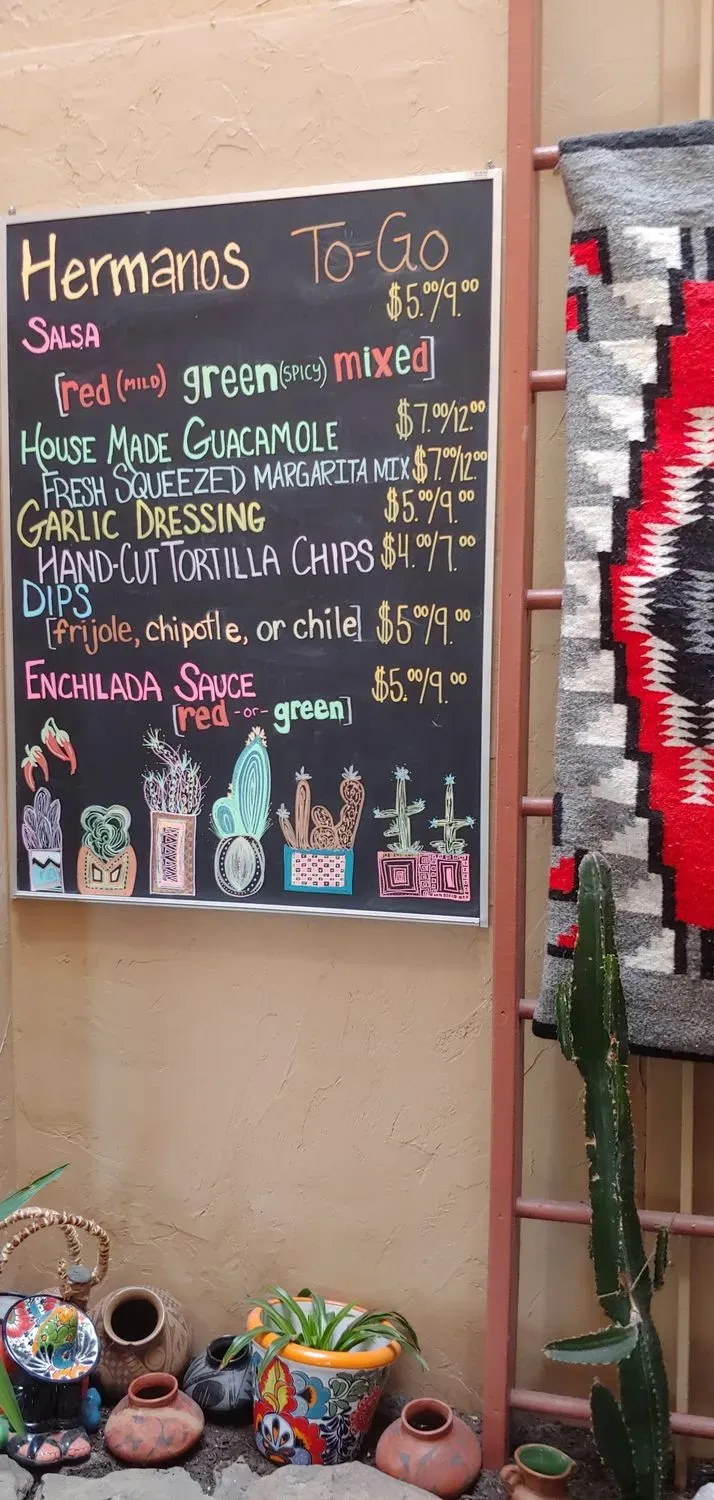 Hermanos To-Go
$5.00/9.00
SALSA
[red (MILD) green (SPICY) mixed]
HOUSE MADE GUACAMOLE $7.00/12.00
FRESH SQUEEZED MARGARITA MIX $7.00/12.00
GARLIC DRESSING $5.00/9.00
HAND-CUT TORTILLA CHIPS $4.00/7.00
DIPS
[frijole, chipotle, or chile] $5.00/9.00
ENCHILADA SAUCE $5.00/9.00
[red -or- green]